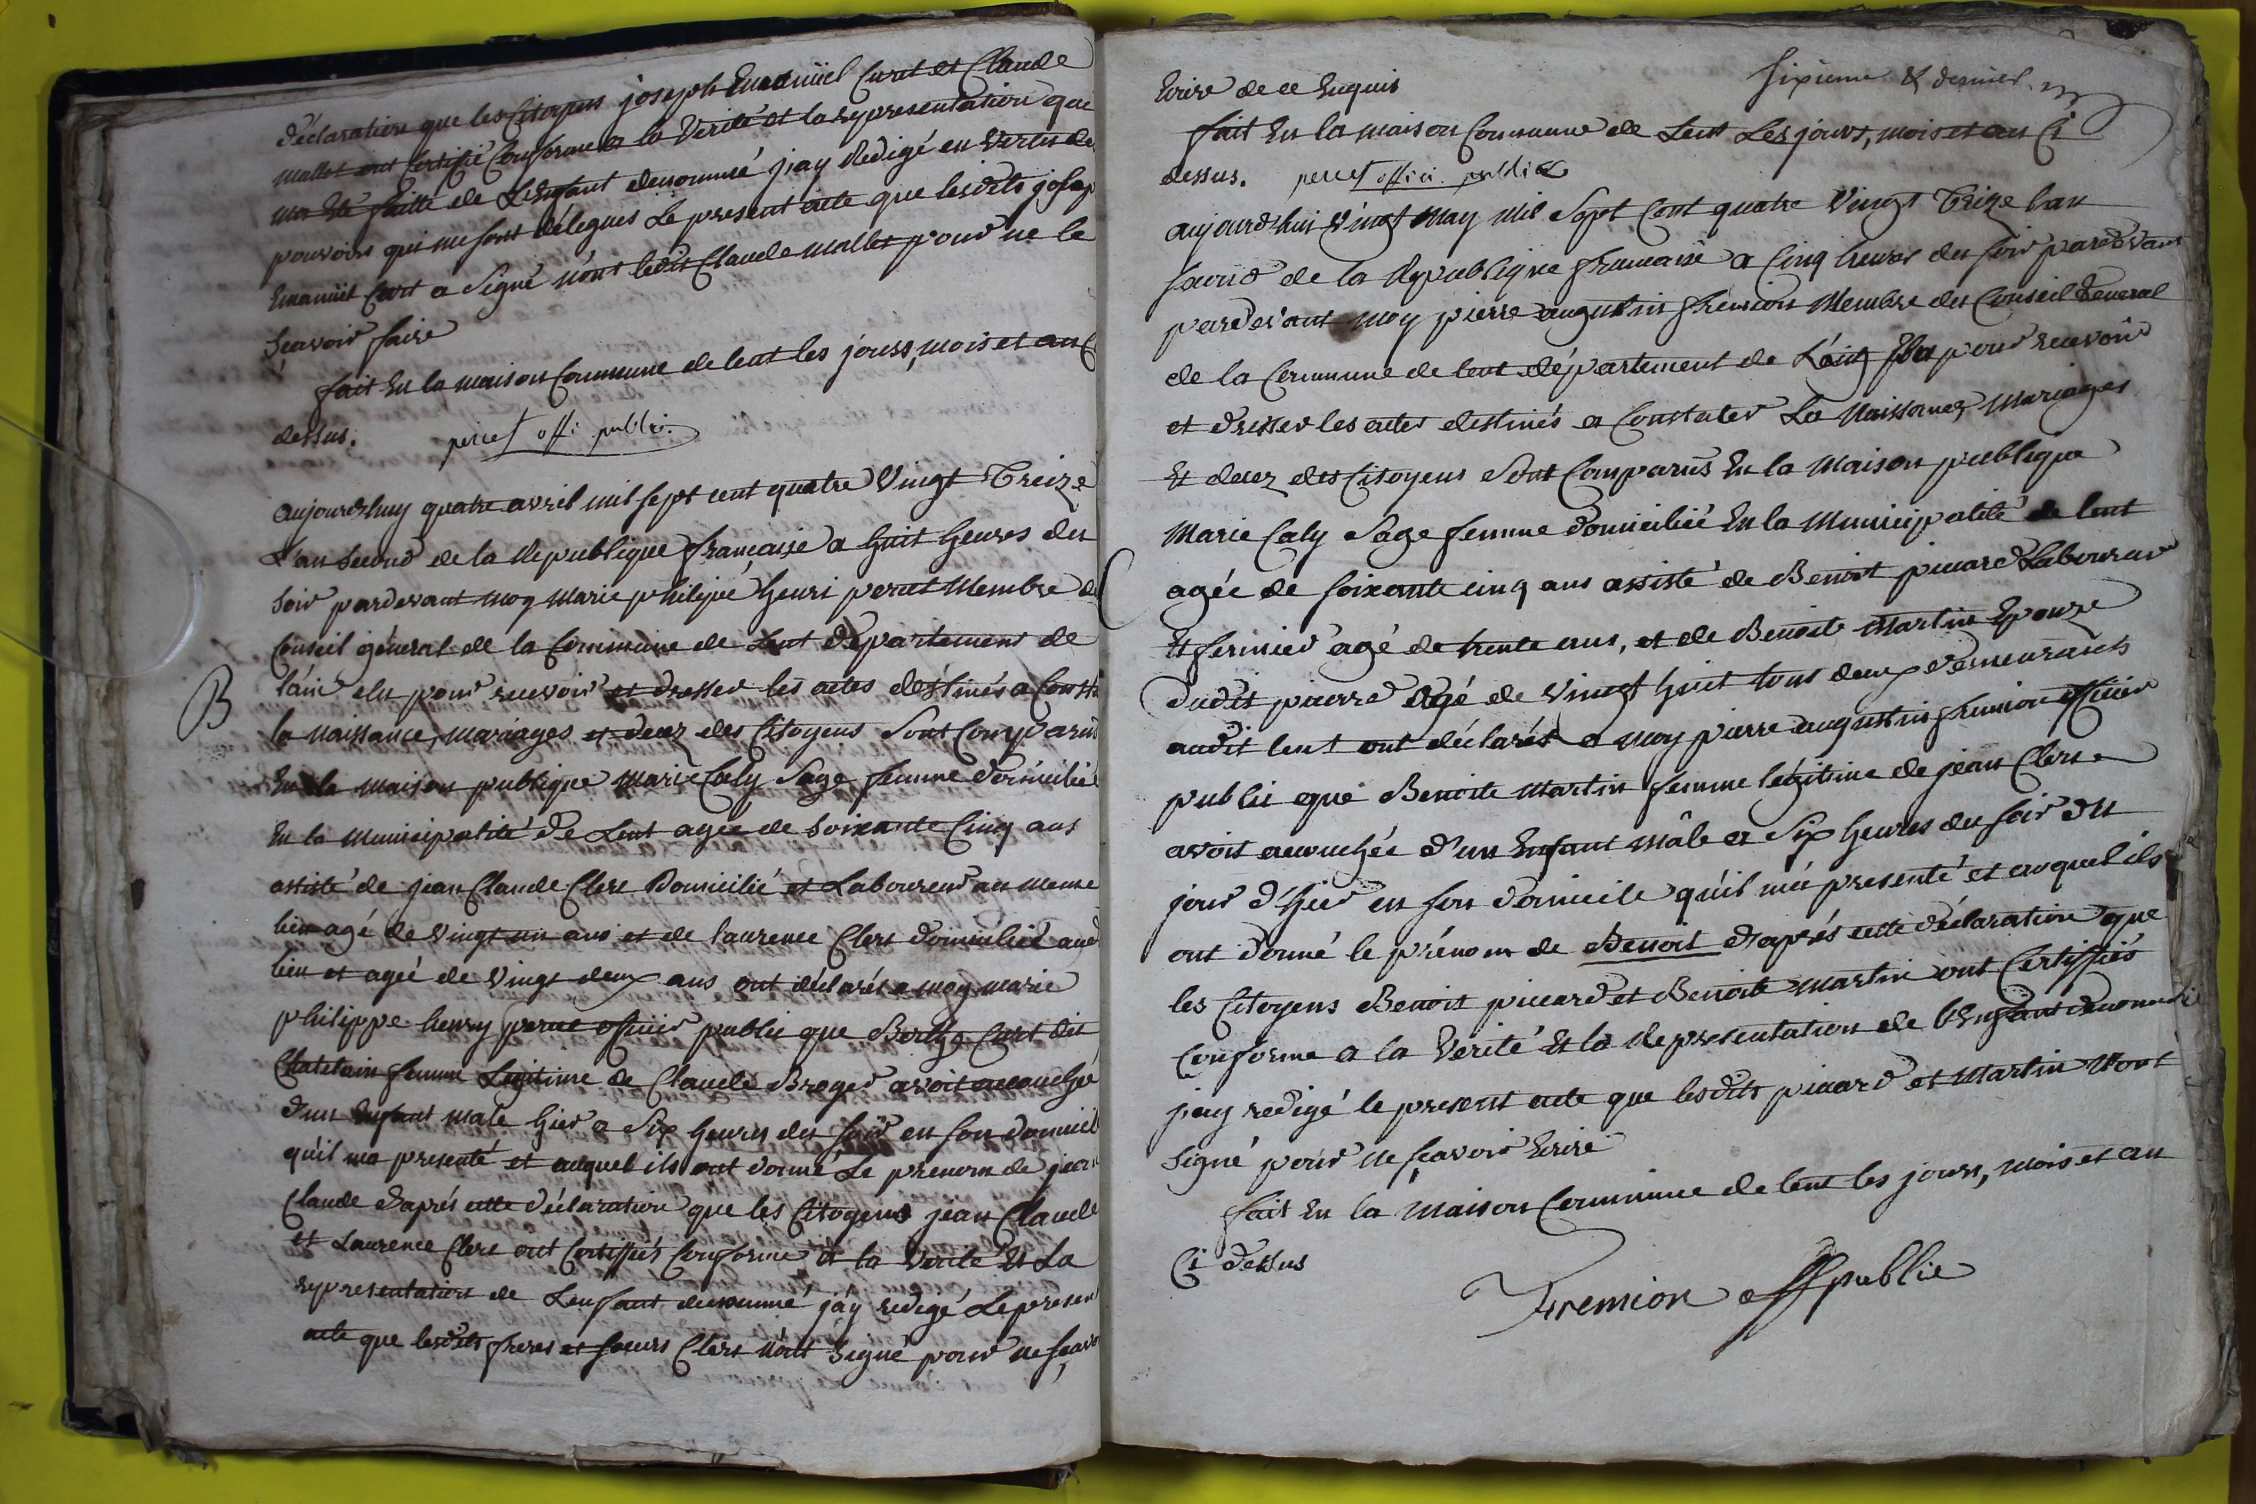 déclaration que les Citoyens joseph Emanuel Curt et Claude
mallet ont certifié Conforme a la Verité et la representation qui
ma Eté faitte de L'Enfant denommé j'ay Redigé en Vertu des
pouvoirs qui me sont délegués Le present acte que lesdits joseph
Emanuel Curt a Signé n'ont ledit Claude mallet pour ne le
Sçavoir faire
fait En la maison Commune de lent les jours, mois et an Ci
dessus. perret offi public.
aujourdhuy quatre avril mil sept cent quatre Vingt Treize
L'an Second de la Republique francaise a huit heures du
Soir pardevant moy Marie philippe henri perret Membre du
Conseil géneral de la Commune de Lent Département de
l'ain elu pour recevoir et dresser les actes déstinés a Const
B
la Naissance, mariages et decez des Citoyens Sont Comparus
En la maison publique Marie Caly Sage femme domiciliée
En la Municipalité de Lent agée de Soixante Cinq ans
assisté de jean Claude Clerc Domicilié et Laboureur au meme
lieu agé de Vingt un ans et de laurence Clerc domiciliée aud
lieu et agée de Vingt deux ans ont déclarés a moy marie
philippe henry perret officier public que Curt dit
Chatelain femme Legitime de Claude Broyer avoit accouchée
d'un Enfant male hier a Six heures du Soir en son domicile
qu'il ma presenté et auquel ils ont donné Le prenom de jean
Claude d'aprés cette déclaration que les Citoyens jean Claude
et Laurence Clerc ont Certiffiés Conforme a la Verité Et La
representation de L'enfant denommé j'ay redigé Le present
acte que lesdits freres et soeurs Clerc n'ont Signé pour ne sçavoir
Ecrire de ce Enquis
Sixieme & dernier.
fait En la maison Commune de Lent Les jours, mois et an Ci
dessus. perret offici. public
aujourdhui Vingt May mil Sept Cent quatre Vingt Treize l'an
second de la Republique francaise a Cinq heures du soir pardevant
pardevant moy pierre augustin fremion Membre du Conseil General
de la Commune de lent département de L'ain Elu pour recevoir
et dresser les actes destinés a Constater La Naissances, Mariages
Et decez des Citoyens Sont Comparus En la Maison publique
Marie Caly Sage femme domiciliée En la Municipalité de lent
agée de soixante cinq ans assisté de Benoit picard Laboureur
Et fermier agé de trente ans, et de Benoite Martin Epouze
dudit picard agé de Vingt huit tous deux demeurants
audit lent ont déclarés a moy pierre augustin fremion officier
public que Benoite Martin femme légitime de jean Clerc
avoit accouchée d'un Enfant mâle a Six heures du soir du
jour d'hier en son domicile qu'il m'a presenté et auquel ils
ont donné le prénom de Benoit d'aprés cette déclaration que
les Citoyens Benoit picard et Benoite Martin ont Certiffiés
Conforme a la Verité Et la Representation de l'Enfant denommé
j'ay redigé le present acte que lesdits picard et Martin n'ont
Signé pour ne sçavoir Ecrire
fait En la Maison Commune de lent les jours, mois et an
Ci dessus
Fremion off public